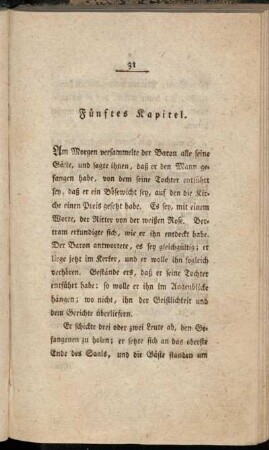 31
Fünftes Kapitel.
Am Morgen versammelte der Baron alle seine
Gäste, und sagte ihnen, daß er den Mann ge-
fangen habe, von dem seine Tochter entführt
sey, daß er ein Bösewicht sey, auf den die Kir-
che einen Preis gesetzt habe. Es sey, mit einem
Worte, der Ritter von der weißen Rose. Ber-
tram erkundigte sich, wie er ihn entdeckt habe.
Der Baron antwortete, es sey gleichgültig; er
liege jetzt im Kerker, und er wolle ihn sogleich
verhören. Gestände er, daß er seine Tochter
entführt habe: so wolle er ihn im Augenblicke
hängen; wo nicht, ihn der Geistlichkeit und
dem Gerichte überliefern.
Er schickte drei oder zwei Leute ab, den Ge-
fangenen zu holen; er setzte sich an das oberste
Ende des Saals, und die Gäste standen um